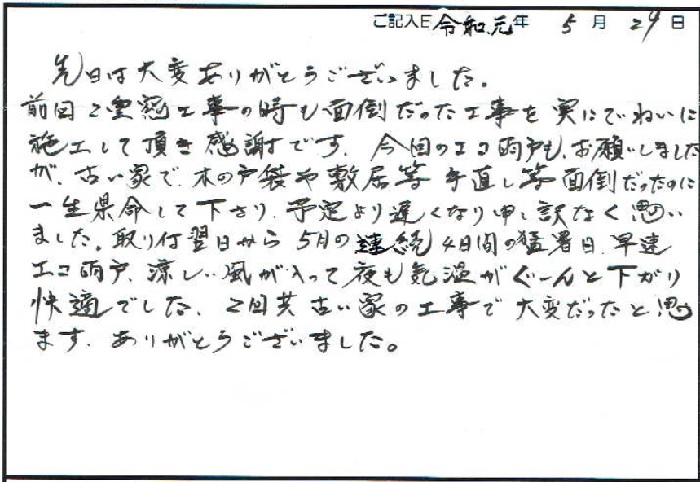 ご記入日 令和元年 5月 29日
先日は大変ありがとうございました。
前回2重窓工事の時も面倒だった工事を実にていねいに
施工して頂き感謝です。今回のエコ雨戸も、お願いしました
が、古い家で、木の戸袋や敷居等手直し等面倒だったのに
一生県命して下さり、予定より遅くなり申し訳なく思い
ました。取り付翌日から5月の連続4日間の猛暑日、早速
エコ雨戸、涼しい風が入って夜も気温がぐーんと下がり
快適でした、2回共古い家の工事で大変だったと思い
ます。ありがとうございました。